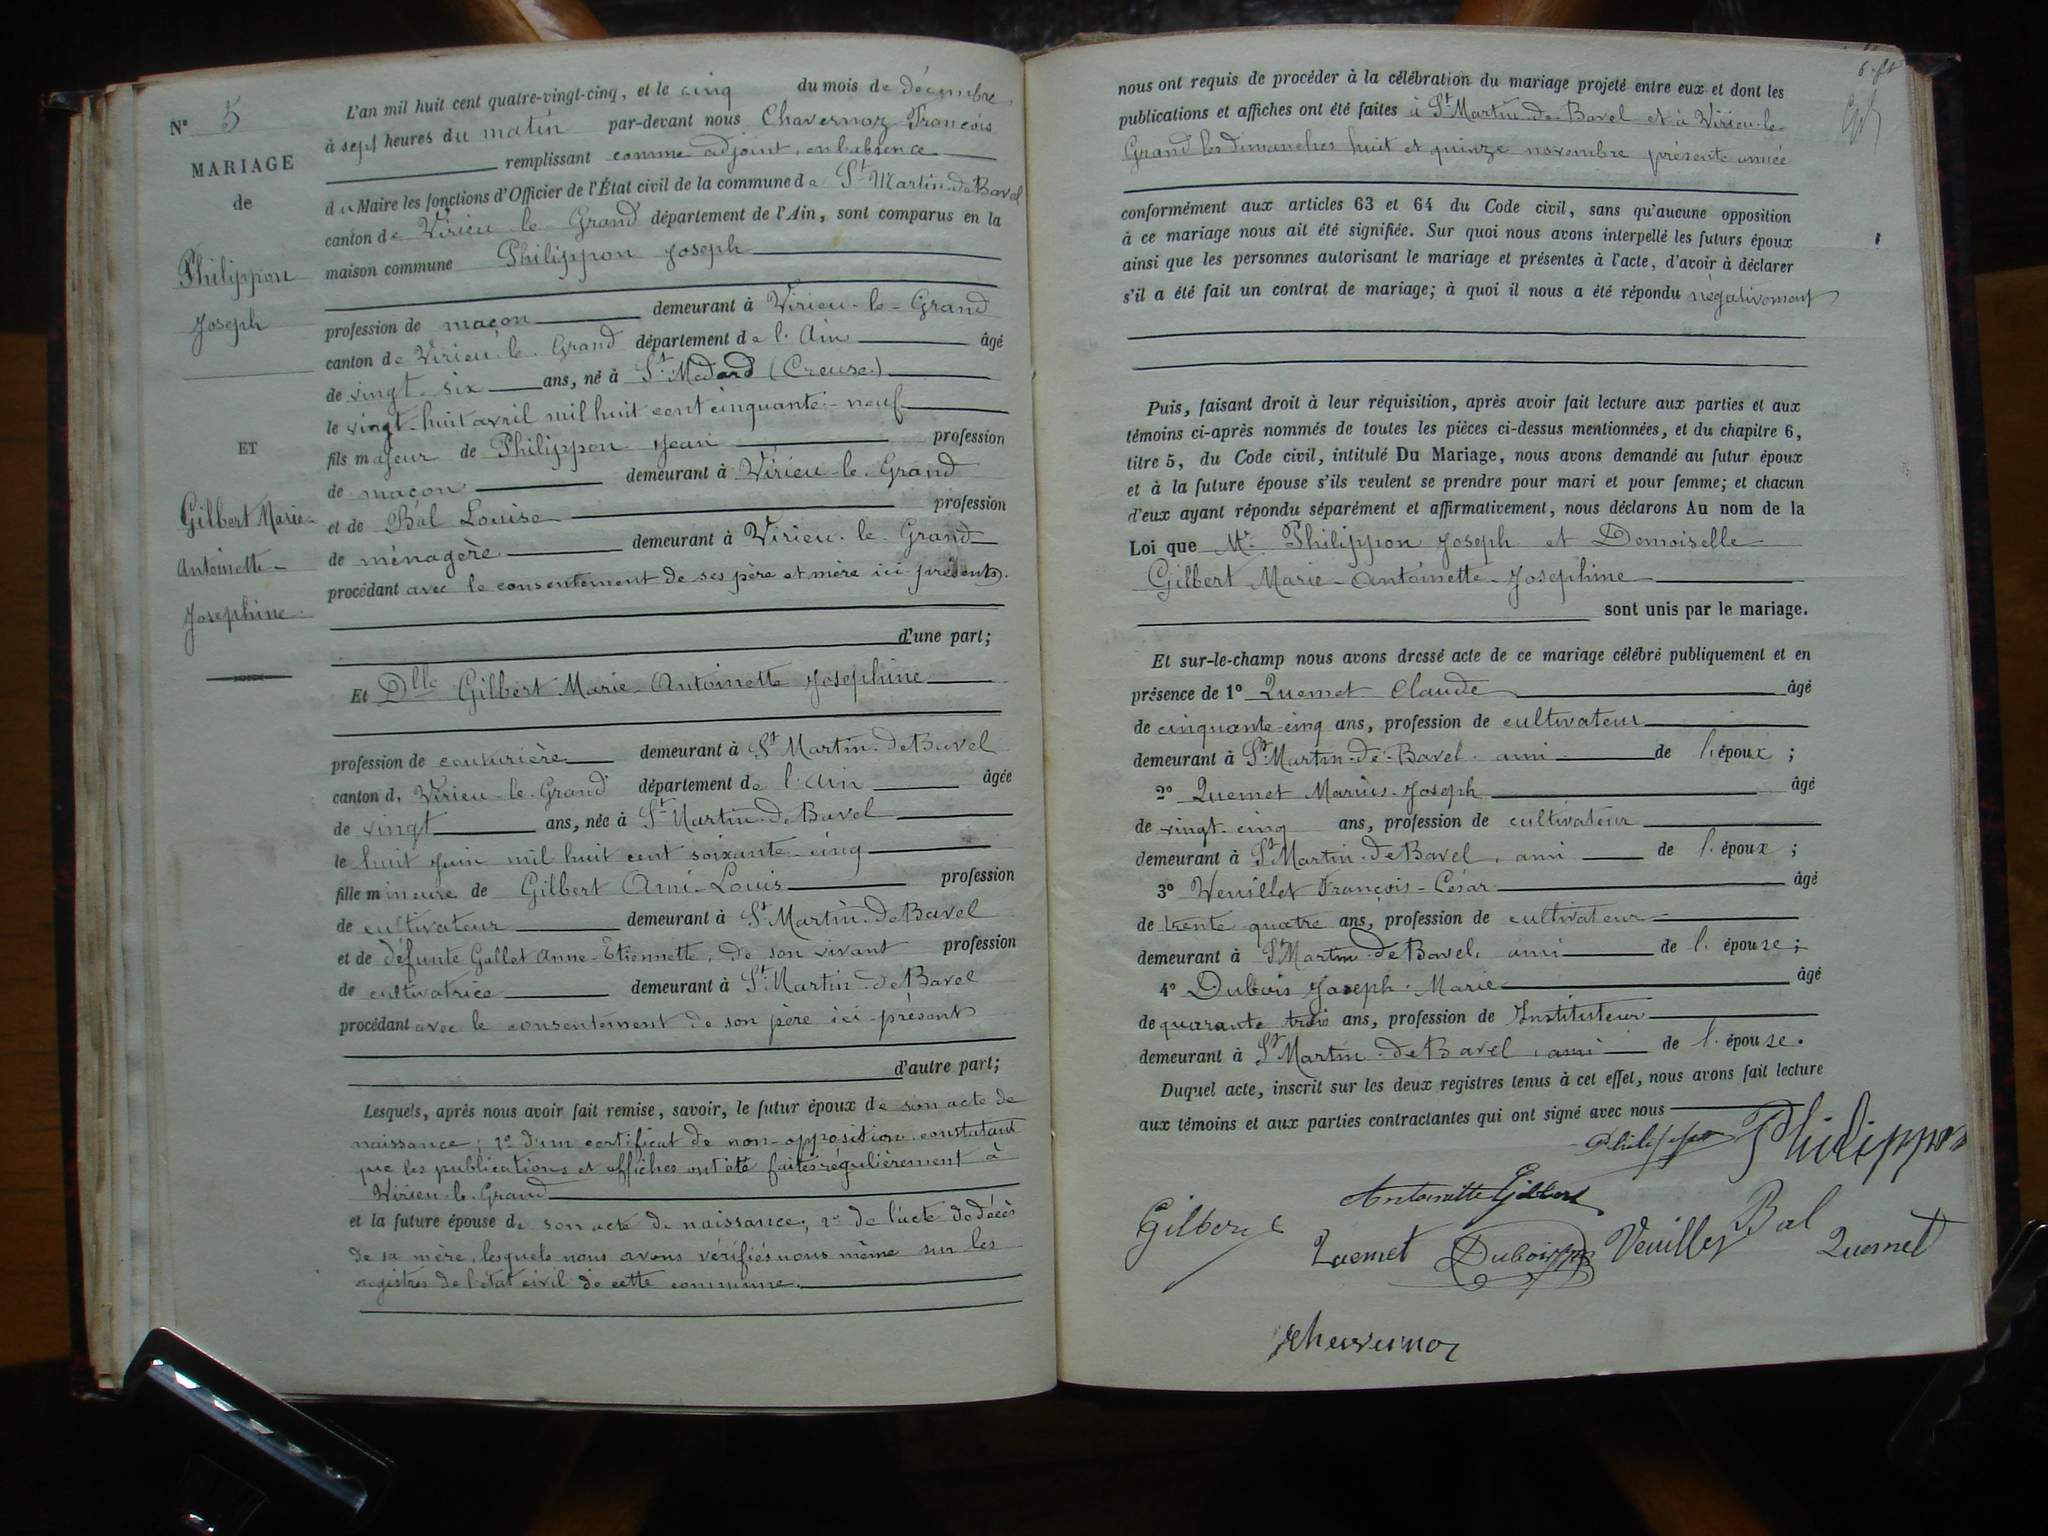 N° 5
MARIAGE
de
Philippon
Joseph
ET
Gilbert Marie-
Antoinette-
Josephine
L'an mil huit cent quatre-vingt-cinq, et le cinq du mois de décembre,
à sept heures du matin par-devant nous Chavernoz François
remplissant comme adjoint, en l'absence
du Maire les fonctions d'Officier de l'État civil de la commune de St Martin-de Bavel
canton de Virieu le Grand département de l'Ain, sont comparus en la
maison commune Philippon Joseph
profession de maçon demeurant à Virieu-le-Grand
canton de Virieu-le-Grand département de l'Ain âgé
de vingt-six ans, né à St Medard (Creuse)
le vingt-huit avril mil huit cent cinquante-neuf
fils majeur de Philippon Jean profession
de maçon demeurant à Virieu-le-Grand
et de Bal Louise profession
de ménagère demeurant à Virieu-le-Grand
procédant avec le consentement de ses père et mère ici présents.
d'une part;
Et Dlle Gilbert Marie-Antoinette Josephine
profession de couturière demeurant à St Martin-de Bavel
canton d. Virieu-le-Grand département de l'Ain âgée
de vingt ans, née à St Martin-de Bavel
le huit Juin mil huit cent soixante-cinq
fille mineure de Gilbert Ami-Louis profession
de cultivateur demeurant à St Martin-de Bavel
et de défunte Gallet Anne-Etiennette, de son vivant profession
de cultivatrice demeurant à St Martin-de Bavel
procédant avec le consentement de son père ici présent
d'autre part;
Lesquels, après nous avoir fait remise, savoir, le futur époux de son acte de
naissance; 2° d'un certificat de non-opposition constatant
que les publications et affiches ont été faites régulièrement à
Virieu-le-Grand
et la future épouse de son acte de naissance, 2° de l'acte de décès
de sa mère, lesquels nous avons vérifiés nous même sur les
registres de l'état civil de cette commune.
nous ont requis de procéder à la célébration du mariage projeté entre eux et dont les
publications et affiches ont été faites à St Martin-de-Bavel et à Virieu-le-
Grand les dimanches huit et quinze novembre présente année
conformément aux articles 63 et 64 du Code civil, sans qu'aucune opposition
à ce mariage nous ait été signifiée. Sur quoi nous avons interpellé les futurs époux
ainsi que les personnes autorisant le mariage et présentes à l'acte, d'avoir à déclarer
s'il a été fait un contrat de mariage; à quoi il nous a été répondu négativement
Puis, faisant droit à leur réquisition, après avoir fait lecture aux parties et aux
témoins ci-après nommés de toutes les pièces ci-dessus mentionnées, et du chapitre 6,
titre 5, du Code civil, intitulé Du Mariage, nous avons demandé au futur époux
et à la future épouse s'ils veulent se prendre pour mari et pour femme; et chacun
d'eux ayant répondu séparément et affirmativement, nous déclarons Au nom de la
Loi que Mr. Philippon Joseph et Demoiselle
Gilbert Marie-Antoinette-Josephine
sont unis par le mariage.
Et sur-le-champ nous avons dressé acte de ce mariage célébré publiquement et en
présence de 1° Quemet Claude âgé
de cinquante-cinq ans, profession de cultivateur
demeurant à St Martin-de-Bavel, ami de l'époux;
2° Quemet Marius-Joseph âgé
de vingt-cinq ans, profession de cultivateur
demeurant à St Martin-de Bavel, ami de l'époux;
3° Veuillet François-César âgé
de trente quatre ans, profession de cultivateur
demeurant à St Martin-de Bavel, ami de l'épouse;
4° Dubois Joseph-Marie âgé
de quarante trois ans, profession de Instituteur
demeurant à St Martin-de Bavel, ami de l'épouse.
Duquel acte, inscrit sur les deux registres tenus à cet effet, nous avons fait lecture
aux témoins et aux parties contractantes qui ont signé avec nous
Philippon
Antoinette Gilbert
Gilbert
Quemet Dubois Veuillet Bal Quemet
Chavernoz